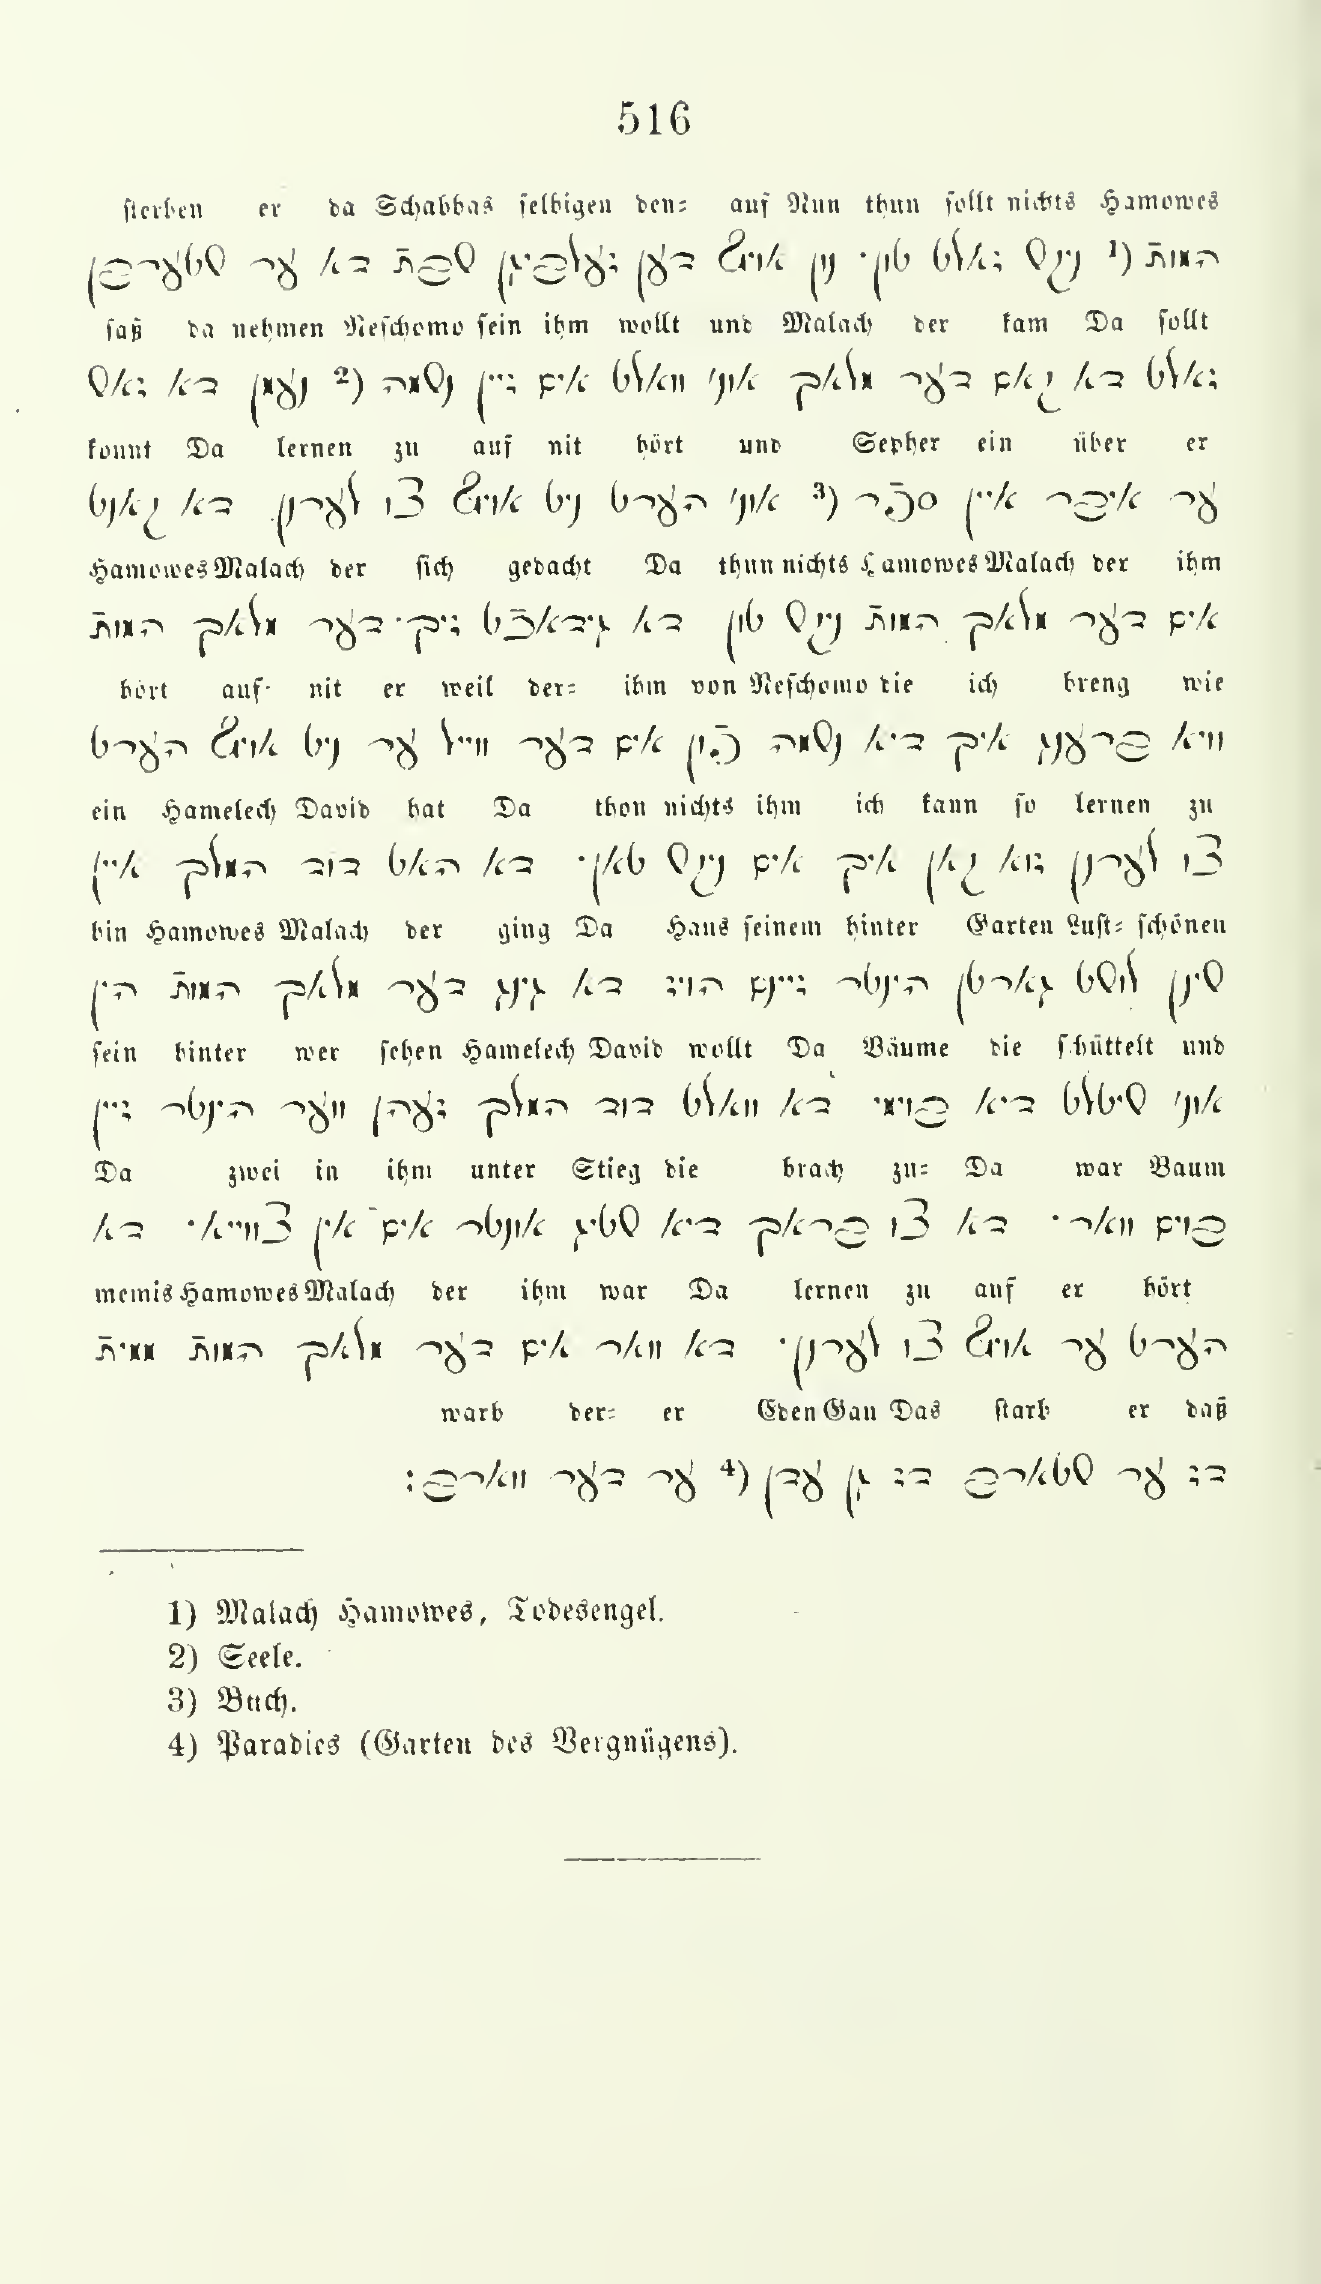 516
sterben er da Schabbas selbigen den= auf Nun thun sollt nichts Hamowes
המות (1 ניקס זאלט טון· נון אויף דען זעלביגן שבת דא ער שטערבן
saß da nehmen Neschomo sein ihm wollt und Malach der kam Da sollt
זאלט דא קאם דער מלאך אונ׳ וואלט אים זיין נשמה (2 נעמן דא זאס
konnt Da lernen zu auf nit hört und Sepher ein über er
ער איבר איין ספר (3 אונ׳ הערט ניט אויף צו לערנן דא קאנט
Hamowes Malach der sich gedacht Da thun nichts Hamowes Malach der ihm
אים דער מלאך המות ניקס טון דא גידאכט זיך· דער מלאך המות
hört auf· nit er weil der= ihm von Neschomo die ich breng wie
וויא ברענג איך דיא נשמה פון אים דער ווייל ער ניט אויף הערט
ein Hamelech David hat Da thon nichts ihm ich kann so lernen zu
צו לערנן זוא קאן איך אים ניקס טאן· דא האט דוד המלך איין
hin Hamowes Malach der ging Da Haus seinem hinter Garten Lust= schönen
שינן לושט גארטן הינטר זיינם הויז דא גינג דער מלאך המות הין
sein hinter wer sehen Hamelech David wollt Da Bäume die schüttelt und
אונ׳ שיטלט דיא בוימי דא וואלט דוד המלך זעהן ווער הינטר זיין
Da zwei in ihm unter Stieg die brach zu= Da war Baum
בוים וואר· דא צו בראך דיא שטיג אונטר אים אין צווייא· דא
memis Hamowes Malach der ihm war Da lernen zu auf er hört
הערט ער אויף צו לערנן· דא וואר אים דער מלאך המות ממית
warb der= er Eden Gan Das starb er daß
דז ער שטארב דז גן עדן (4 ער דער ווארב:
1) Malach Hamowes, Todesengel.
2) Seele.
3) Buch.
4) Paradies (Garten des Vergnügens).